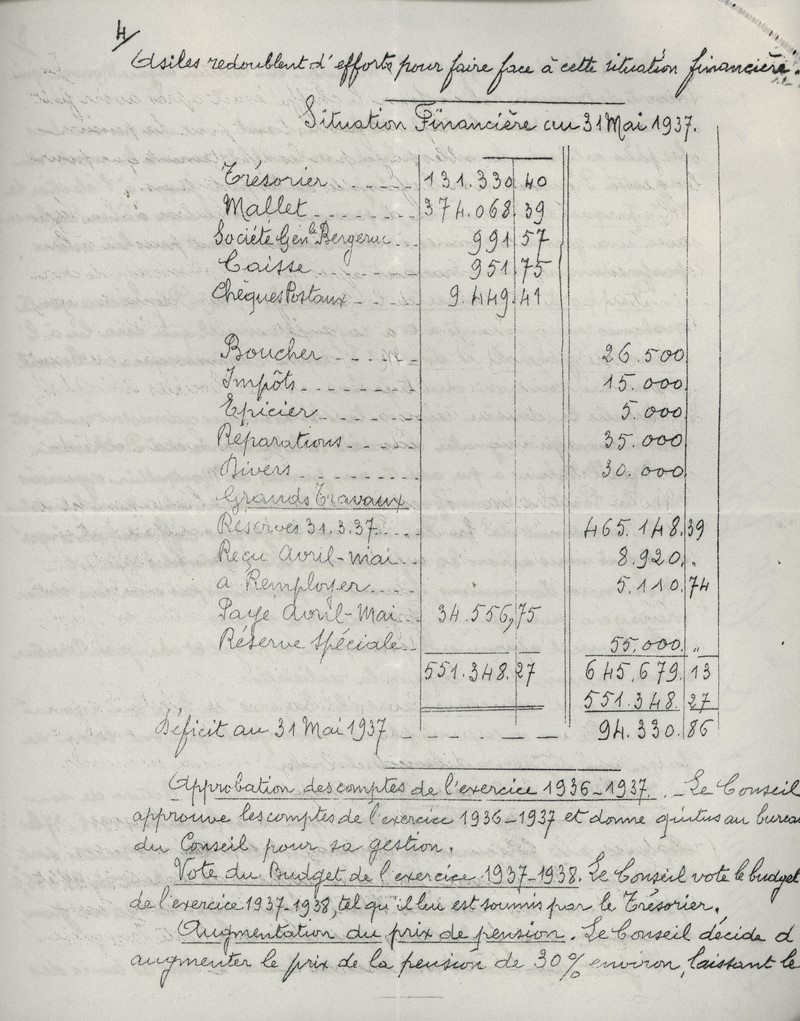 4/
Asiles redoublent d'efforts pour faire face à cette situation financière.
Situation Financière au 31 Mai 1937.
Trésorier ..... 131.330 40
Mallet ....... 374.068 39
Société Genle Bergerac ... 991 57
Caisse ...... 951 75
Chèques Postaux .... 9.449 41
Boucher .... 26.500
Impôts ...... 15.000
Epicier ...... 5.000
Réparations .... 35.000
Divers ....... 30.000
Grands Travaux
Réserves 31.3.37 .... 465.148.39
Reçu Avril-mai ... 8.920. "
a Remployer .... 5.110.74
Paye Avril-Mai ... 34.556,75
Réserve Spéciale .. 55.000. "
551.348.27 645.679.13
551.348.27
Déficit au 31 Mai 1937 - - - - - 94.330.86
Approbation des comptes de l'exercice 1936-1937. - Le Conseil
approuve les comptes de l'exercice 1936-1937 et donne quitus au bureau
du Conseil pour sa gestion.
Vote du Budget de l'exercice 1937-1938. Le Conseil vote le budget
de l'exercice 1937-1938, tel qu'il lui est soumis par le Trésorier.
Augmentation du prix de pension. Le Conseil décide d
augmenter le prix de la pension de 30% environ, laissant le